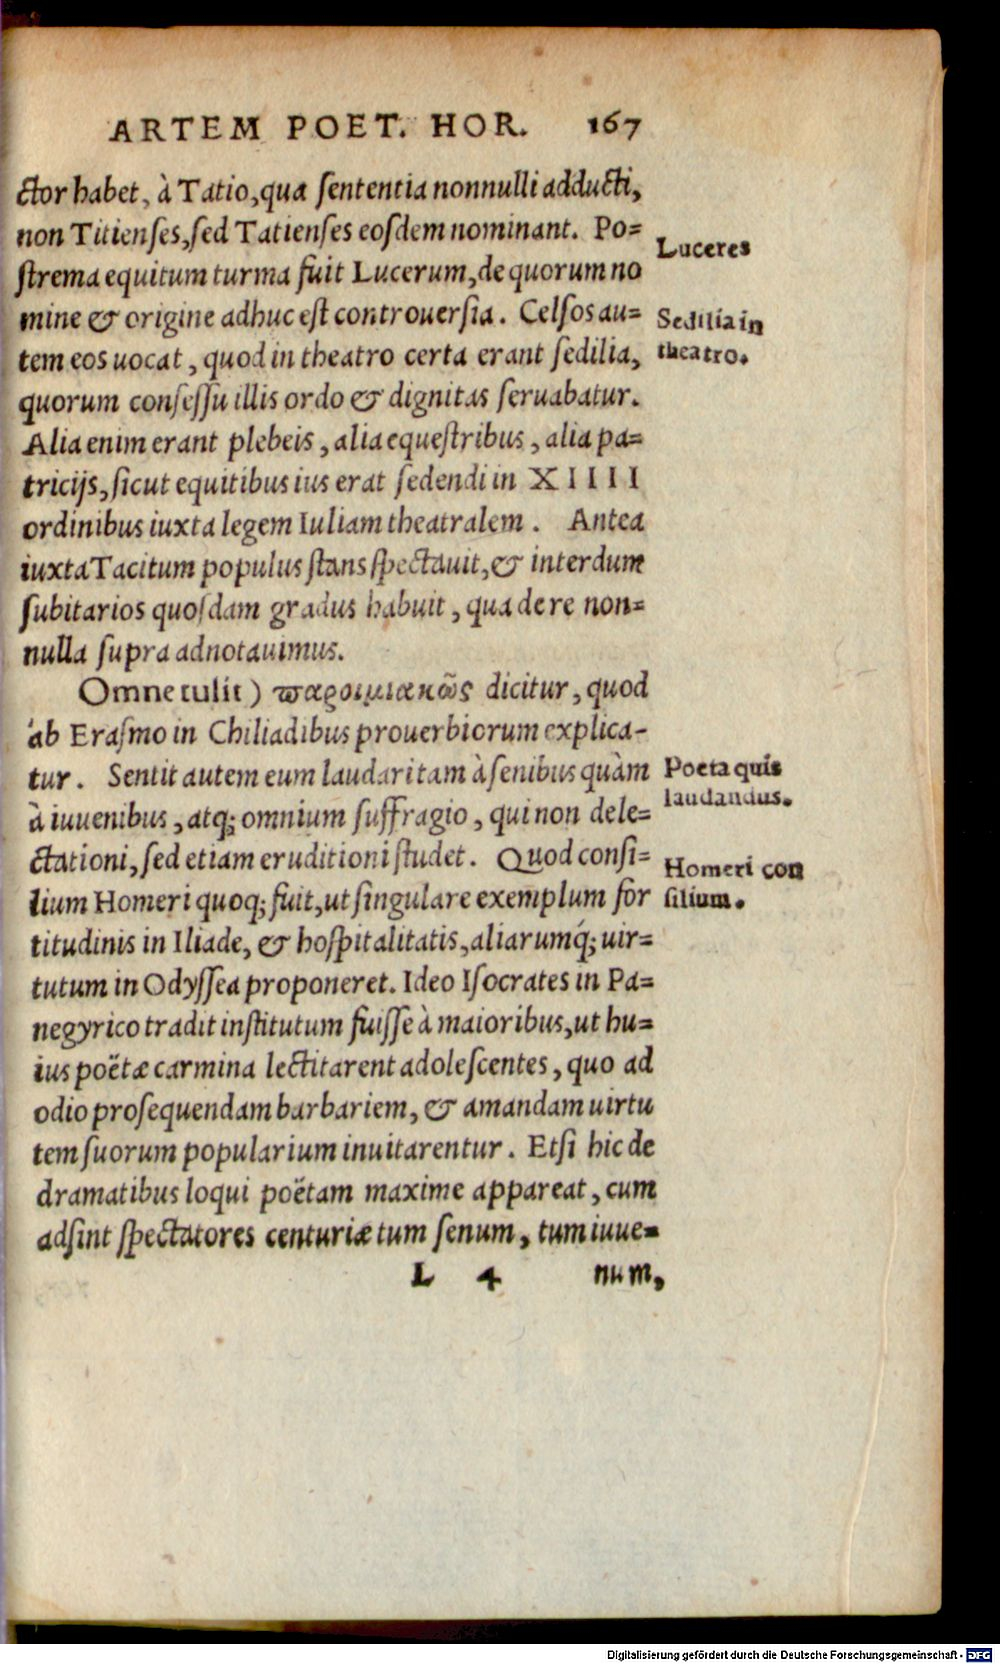 ARTEM POET. HOR. 167
ctor habet, à Tatio, qua sententia nonnulli adducti,
non Titienses, sed Tatienses eosdem nominant. Po=
strema equitum turma fuit Lucerum, de quorum no
mine & origine adhuc est controuersia. Celsos au=
tem eos uocat, quod in theatro certa erant sedilia,
quorum consessu illis ordo & dignitas seruabatur.
Alia enim erant plebeis, alia equestribus, alia pa=
tricijs, sicut equitibus ius erat sedendi in XIIII
ordinibus iuxta legem Iuliam theatralem. Antea
iuxta Tacitum populus stans spectauit, & interdum
subitarios quosdam gradus habuit, qua de re non=
nulla supra adnotauimus.
Omne tulit) παροιμιακῶς dicitur, quod
ab Erasmo in Chiliadibus prouerbiorum explica-
tur. Sentit autem eum laudari tam à senibus quàm
à iuuenibus, atq; omnium suffragio, qui non dele=
ctationi, sed etiam eruditioni studet. Quod consi=
lium Homeri quoq; fuit, ut singulare exemplum for
titudinis in Iliade, & hospitalitatis, aliarumq́; uir=
tutum in Odyssea proponeret. Ideo Isocrates in Pa=
negyrico tradit institutum fuisse à maioribus, ut hu=
ius poëtæ carmina lectitarent adolescentes, quo ad
odio prosequendam barbariem, & amandam uirtu
tem suorum popularium inuitarentur. Etsi hic de
dramatibus loqui poëtam maxime appareat, cum
adsint spectatores centuriæ tum senum, tum iuue=
L 4 num,
Luceres
Sedilia in
theatro.
Poeta quis
laudandus.
Homeri con
silium.
Digitalisierung gefördert durch die Deutsche Forschungsgemeinschaft - DFG